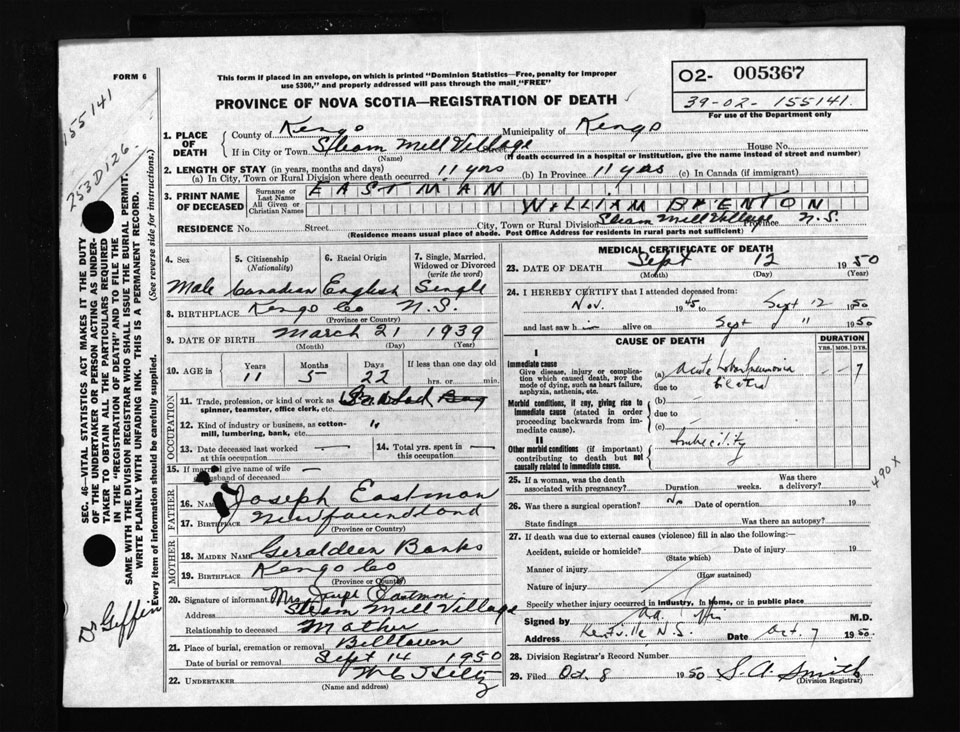 FORM 6
This form if placed in an envelope, on which is printed "Dominion Statistics—Free, penalty for improper
use $300," and properly addressed will pass through the mail "FREE"
O2- 005367
39-02-155141.
For use of the Department only
PROVINCE OF NOVA SCOTIA—REGISTRATION OF DEATH
155141
253D126.
1. PLACE OF DEATH
County of Kings Municipality of Kings
If in City or Town Steam Mill Village Street House No.
(Name) (If death occurred in a hospital or institution, give the name instead of street and number)
2. LENGTH OF STAY (in years, months and days)
(a) In City, Town or Rural Division where death occurred 11 yrs (b) In Province 11 yrs (c) In Canada (if immigrant)
3. PRINT NAME OF DECEASED
Surname or Last Name EASTMAN
All Given or Christian Names WILLIAM BRENTON
RESIDENCE No. Street City, Town or Rural Division Steam Mill Village Province N.S.
(Residence means usual place of abode. Post Office Address for residents in rural parts not sufficient)
4. Sex 5. Citizenship (Nationality) 6. Racial Origin 7. Single, Married, Widowed or Divorced (write the word)
Male Canadian English Single
8. BIRTHPLACE Kings Co N.S.
(Province or Country)
9. DATE OF BIRTH March 21 1939
(Month) (Day) (Year)
10. AGE in Years Months Days If less than one day old
11 5 22 hrs. or min.
OCCUPATION
11. Trade, profession or kind of work as
spinner, teamster, office clerk, etc.
12. Kind of industry or business, as cotton-
mill, lumbering, bank, etc. "
13. Date deceased last worked at this occupation —
14. Total yrs. spent in this occupation —
15. If married give name of wife —
or husband of deceased
FATHER
16. Name Joseph Eastman
17. Birthplace Newfoundland
(Province or Country)
MOTHER
18. MAIDEN NAME Geraldeen Banks
19. BIRTHPLACE Kings Co
(Province or Country)
20. Signature of informant Mrs Joseph Eastman
Address Steam Mill Village
Relationship to deceased Mother
21. Place of burial, cremation or removal
Date of burial or removal Sept 14 1950
22. UNDERTAKER
(Name and address)
MEDICAL CERTIFICATE OF DEATH
23. DATE OF DEATH Sept 12 1950
(Month) (Day) (Year)
24. I HEREBY CERTIFY that I attended deceased from:
Nov. 1945 to Sept 12 1950
and last saw him alive on Sept 11 1950
CAUSE OF DEATH
DURATION
YRS. MOS. DYS.
I
Immediate cause
Give disease, injury or complication which caused death, not the mode of dying, such as heart failure, asphyxia, asthenia, etc.
(a) Acute Lobar pneumonia — — 7
due to
Morbid conditions, if any, giving rise to immediate cause (stated in order proceeding backwards from immediate cause).
(b) —
due to
(c) —
II
Other morbid conditions (if important) contributing to death but not causally related to immediate cause.
Imbecility
490X
25. If a woman, was the death associated with pregnancy? Duration weeks. Was there a delivery?
26. Was there a surgical operation? No Date of operation 19
State findings Was there an autopsy?
27. If death was due to external causes (violence) fill in also the following:—
Accident, suicide or homicide? Date of injury 19
(State which)
Manner of injury
(How sustained)
Nature of injury
Specify whether injury occurred in Industry, in Home, or in public place
Signed by M.D.
Address Kentville N.S. Date Oct. 7 1950.
28. Division Registrar's Record Number
29. Filed Oct. 8 1950 S. A. Smith
(Division Registrar)
SEC. 46—VITAL STATISTICS ACT MAKES IT THE DUTY
OF THE UNDERTAKER OR PERSON ACTING AS UNDER-
TAKER TO OBTAIN ALL THE PARTICULARS REQUIRED
IN THE "REGISTRATION OF DEATH" AND TO FILE THE
SAME WITH THE DIVISION REGISTRAR WHO SHALL ISSUE THE BURIAL PERMIT.
WRITE PLAINLY WITH UNFADING INK. THIS IS A PERMANENT RECORD.
Every item of information should be carefully supplied. (See reverse side for instructions.)